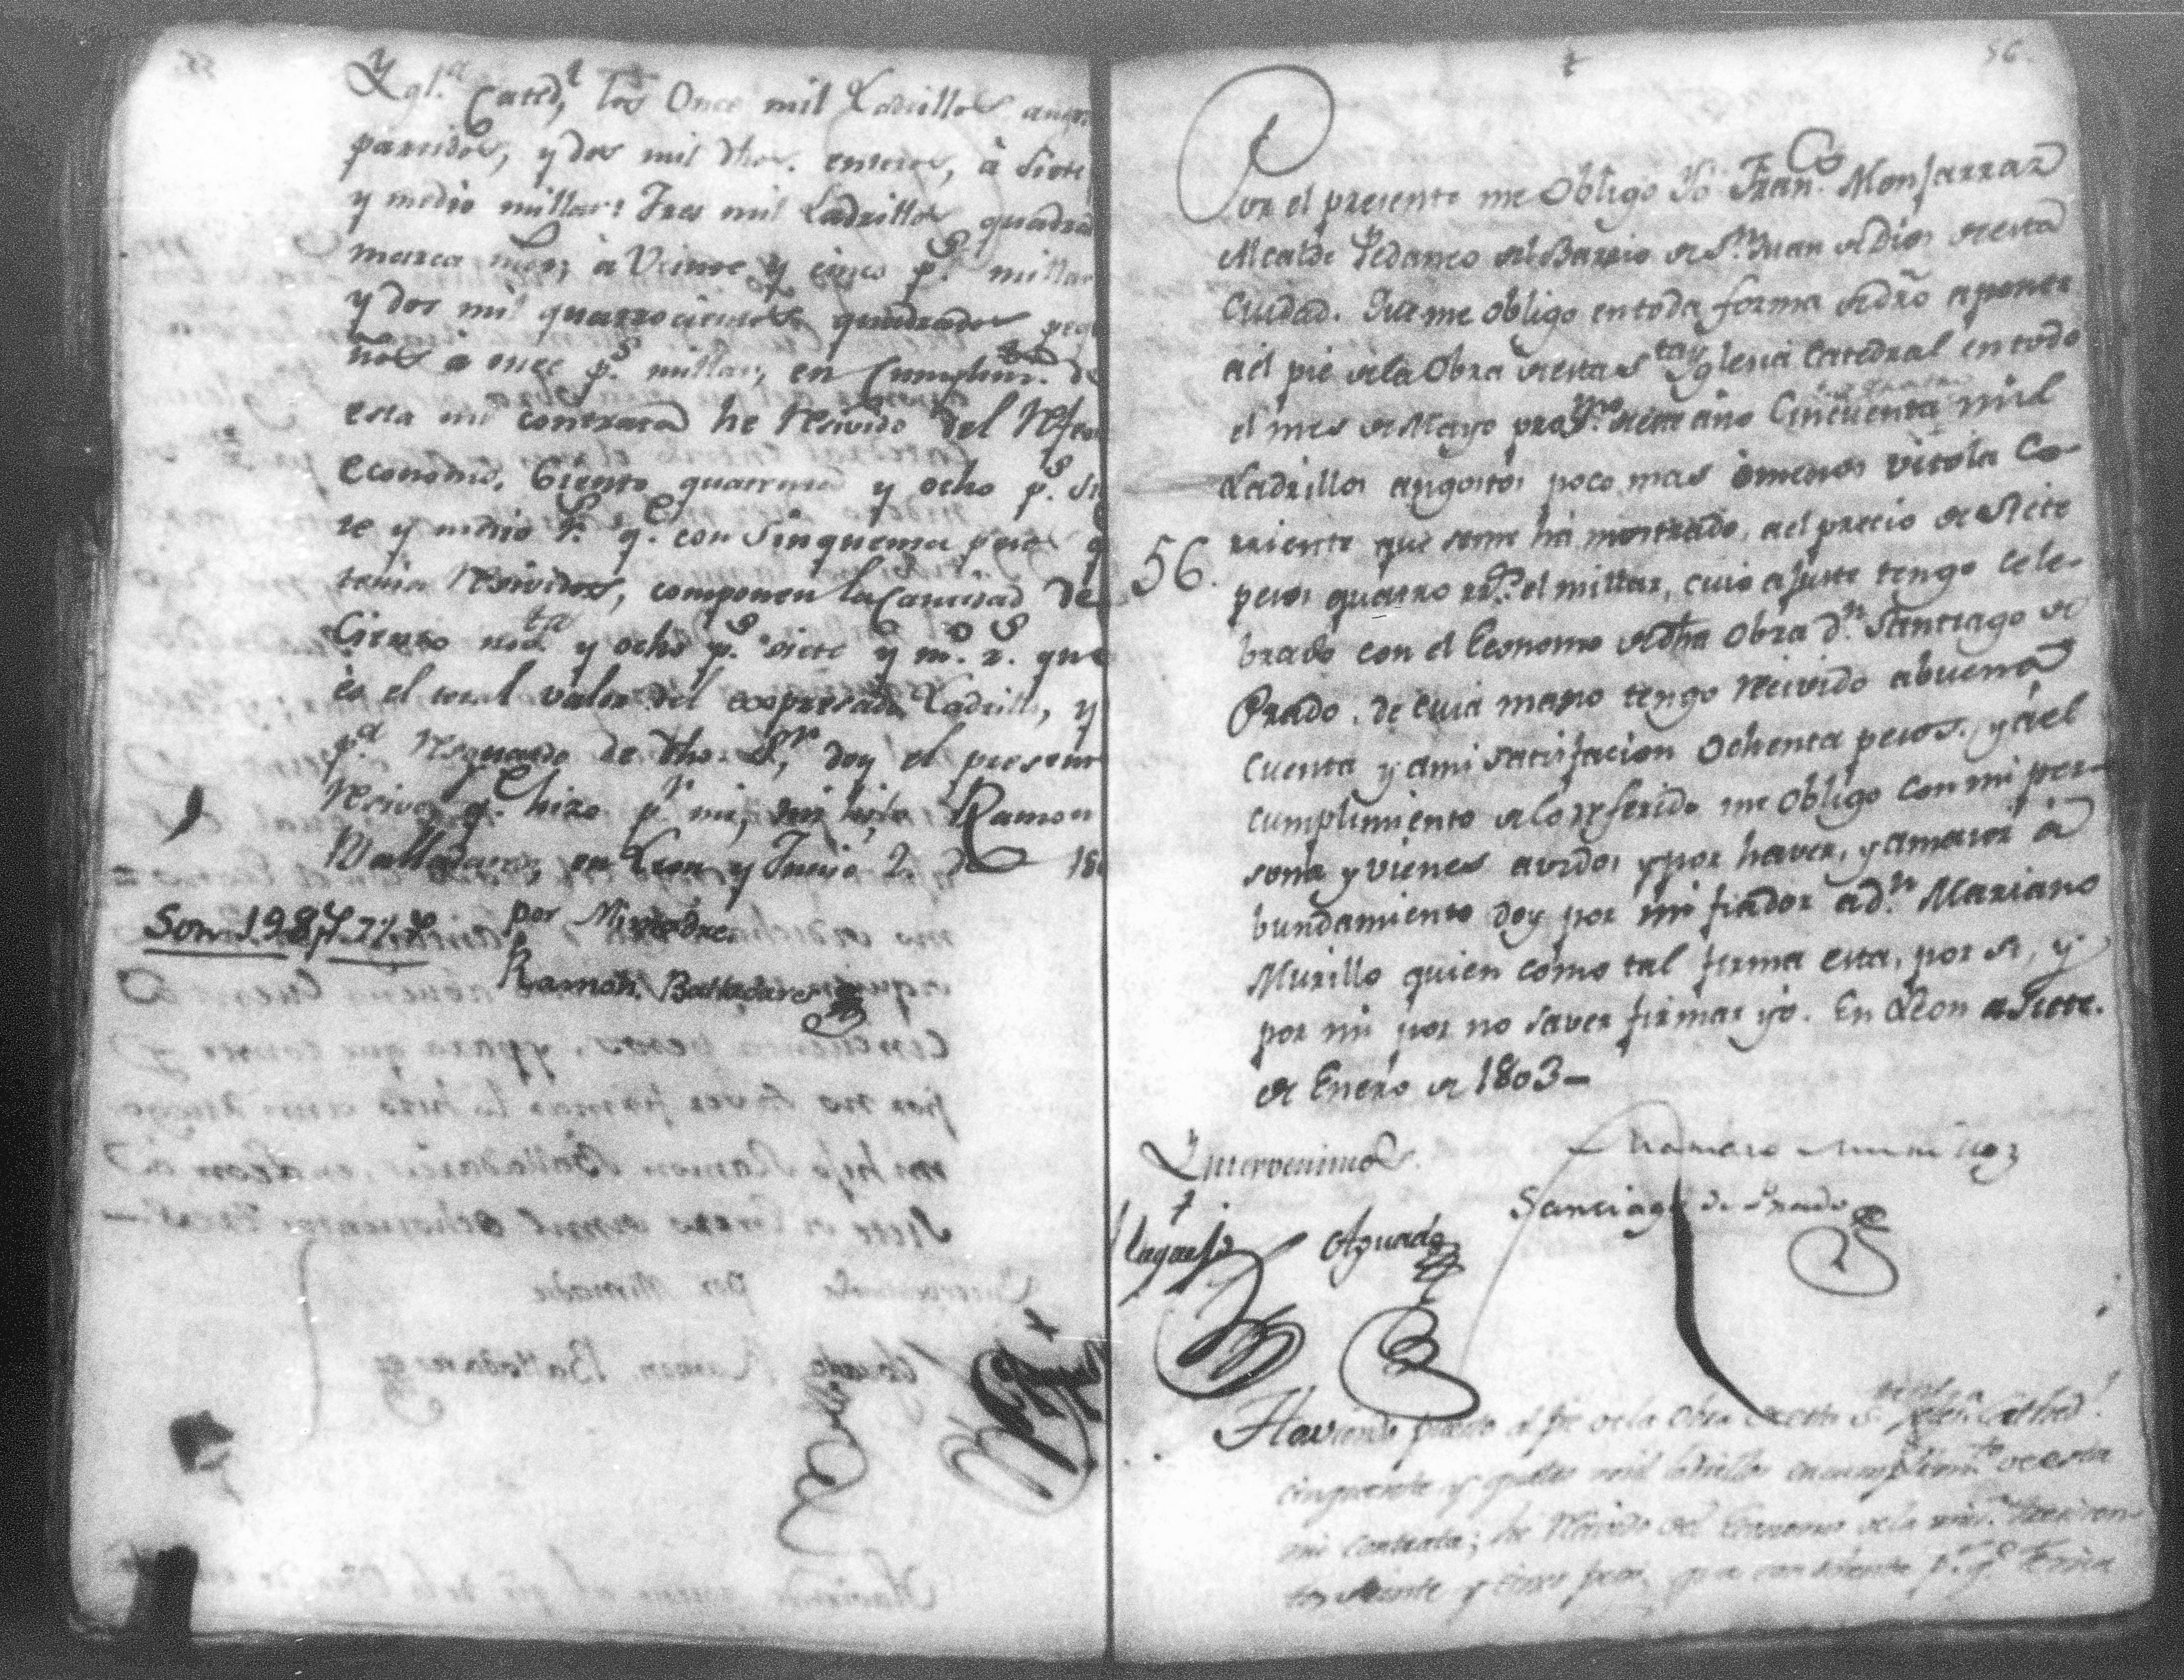 Ygl.ª Cated.l los Once mil Ladrillos angos
parridos, y dos mil dhos. enteros, à Siete
y medio millar: Tres mil Ladrillos quadrad
marca à Veinte y cinco p.s millar
y dos mil quatrocientos quadrados peq
ños à once p.s millar, en Cumplim.to de
esta mi contrata he Resivido del Refer
Economo, Ciento quarenta y ocho p.s Si
te y medio r.s q.e con Sinquenta pesos q
tenia Resividos, componen la Cantidad de
Ciento nov.ta y ocho p.s siete y m.o r.s que
es el total valor del expresado Ladrillo, y
p.ª Resguardo de dho. S.or doy el presente
Resivo, q.e hizo p.r mi, mi hijo Ramon
Balladares, en Leon y Junio 2. de 180
Son 198 p.s 7½ r.s por Mi madre
Ramon Balladares
56.
Por el presente me Obligo Yo Fran.co Monjarraz
Alcalde Pedaneo del Barrio de S.n Juan de Dios de esta
Ciudad. Que me obligo en toda forma de dro a poner
ael pie de la Obra de esta S.ta Yglesia Catedral en todo
el mes de Mayo pro.mo de este año Cincuenta mil
Ladrillos angostos poco mas ò menos vitola Co-
rriente que se me ha mostrado, ael precio de Siete
56.
pesos quatro rr.s el millar, cuio ajuste tengo Cele-
brado con el Economo de dha Obra d.n Santiago de
Prado, de cuia mano tengo Recivido abuena
Cuenta y ami satisfacion Ochenta pesos. y àel
cumplimiento de lo referido me Obligo con mi per-
sona y vienes avidos y por haver, y amaior à
bundamiento doy por mi fiador ad.n Mariano
Murillo quien como tal firma esta, por si, y
por mi por no saver firmar yo. En Leon a Siete
de Enero de 1803-
Yntervenimos.
Mariano Murillo
Santiago de Prado
Aguado
Haviendo puesto al pie de la Obra de esta S.ta Yglesia Cathed.l
cinquenta y quatro mil ladrillos en cumplim.to de esta
mi contrata; he Recivido del Economo de la mis.ª trescien-
tos veinte y cinco pesos, que con ochenta p.s q.e tenia